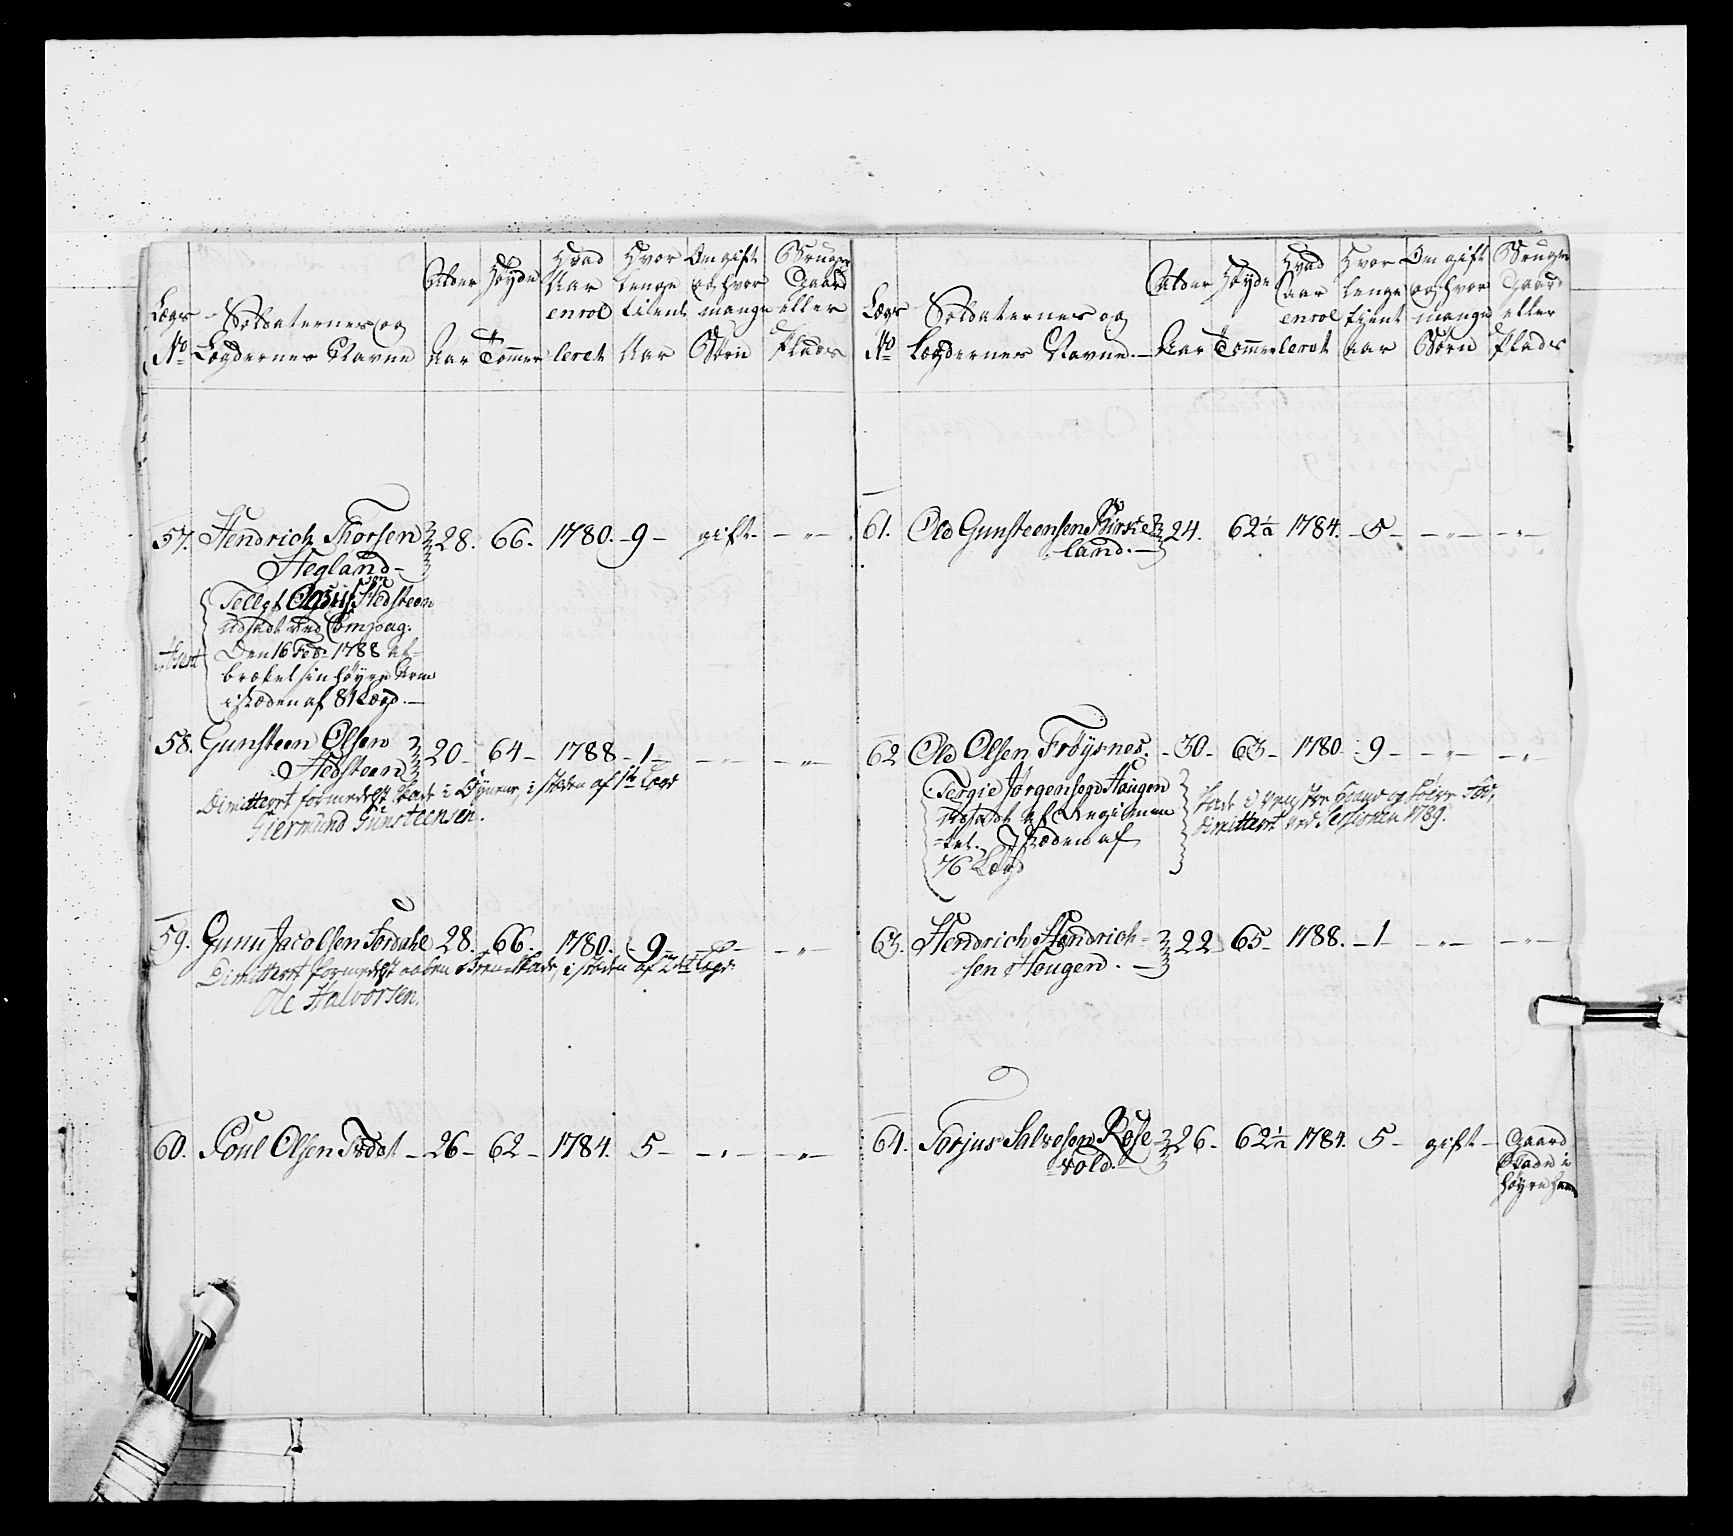 Lægs No
Soldaternes og Lægdernes Navne
Alder Aar
Høyde Tommer
Hvad Aar enrolleret
Hvor lenge tient Aar
Om gift og hvor mange Børn
Bruger Gaard eller Plads
57. Hendrich Thorsen 28. 66. 1780. - 9 - gift - - " -
Hegland -
Hedsteen
udsadt ved Compag:
Den 16 Feb: 1788 af-
brækket sin høyre Arm
i stæden af 81 Lægd. -
58. Gunsteen Olsen 20 - 64 - 1788 - 1 - - " - - " -
Hedsteen
Dimittert formedelst Skade i Øynene, i stæden af 1te Lægd
Giermund Gunsteensen.
59. Gunn Jacobsen Sordahl 28. 66. 1780. - 9 - - " -
Dimittert formedelst aaben Been Skade, i stæden af 2det Lægd.
Ole Halvorsen.
60. Poul Olsen Tvedt - 26 - 62 - 1784. 5 - - " - - " -
Lægs No
Soldaternes og Lægdernes Navne. -
Alder Aar
Høyde Tommer
Hvad aar enrolleret
Hvor lenge tient aar
Om gift og hvor mange Børn
Bruger Gaard eller Plads
61. Ole Gunsteensen Birke 24. 62½ 1784. - 5 - - " - - " -
land. -
62 Ole Olsen Frøysnes. - 30 - 63 - 1780 - 9 - - " - - " -
Tergie Jørgensen Haugen
udsadt af Regimen
-tet. I stæden af
76 Lægd
Skade i venstre Haand og høire Fod,
Dimittert ved Sessionen 1789.
63. Hendrich Hendrich- 22 65 - 1788. - 1 - - " - - " -
sen Heugen. -
64. Torjus Salvesen Rose 26 - 62½ 1784. 5 - gift - Gaard
vold. -
Skade i
høyre Haand